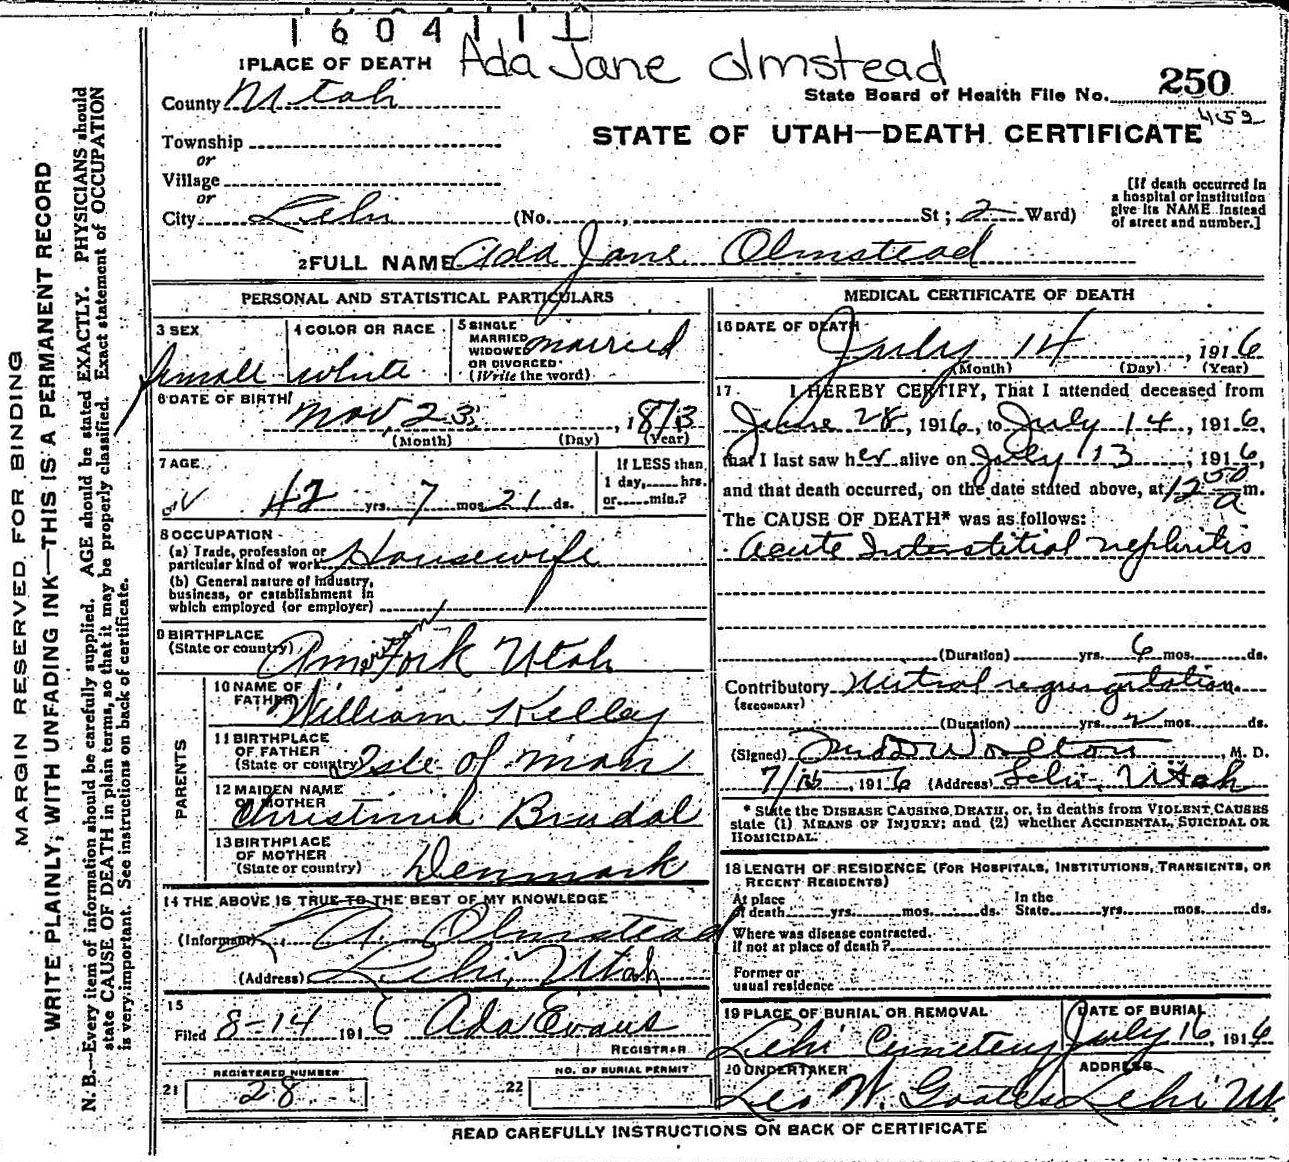 1604111
Ada Jane Olmstead
1 PLACE OF DEATH
County Utah
State Board of Health File No. 250
452
Township
or
Village
or
City Lehi (No. , St; 2 Ward)
STATE OF UTAH—DEATH CERTIFICATE
[If death occurred in
a hospital or institution
give its NAME instead
of street and number.]
2 FULL NAME Ada Jane Olmstead
PERSONAL AND STATISTICAL PARTICULARS
3 SEX
female
4 COLOR OR RACE
white
5 SINGLE
MARRIED
WIDOWED
OR DIVORCED
(Write the word)
married
6 DATE OF BIRTH
Nov, 23, , 1873
(Month) (Day) (Year)
7 AGE
42 yrs. 7 mos. 21 ds.
If LESS than
1 day, hrs.
or min.?
8 OCCUPATION
(a) Trade, profession or
particular kind of work Housewife
(b) General nature of industry,
business, or establishment in
which employed (or employer)
9 BIRTHPLACE
(State or country) American Fork Utah
PARENTS
10 NAME OF
FATHER William Kelley
11 BIRTHPLACE
OF FATHER
(State or country) Isle of Man
12 MAIDEN NAME
OF MOTHER
Brudal
13 BIRTHPLACE
OF MOTHER
(State or country) Denmark
14 THE ABOVE IS TRUE TO THE BEST OF MY KNOWLEDGE
(Informant) A. Olmstead
(Address) Lehi, Utah
15
Filed 8-14 1916 Ada Evans
REGISTRAR
21 REGISTERED NUMBER
28
22 NO. OF BURIAL PERMIT
MEDICAL CERTIFICATE OF DEATH
16 DATE OF DEATH
July 14 , 1916
(Month) (Day) (Year)
17. I HEREBY CERTIFY, That I attended deceased from
June 28, 1916, to July 14, 1916,
that I last saw her alive on July 13, 1916,
and that death occurred, on the date stated above, at 12 50 a m.
The CAUSE OF DEATH* was as follows:
Acute Interstitial nephritis
(Duration) yrs. 6 mos. ds.
Contributory Mitral regurgitation
(SECONDARY)
(Duration) yrs. 2 mos. ds.
(Signed) M. D.
7/15, 1916 (Address) Lehi, Utah
* State the DISEASE CAUSING DEATH, or, in deaths from VIOLENT CAUSES
state (1) MEANS OF INJURY; and (2) whether ACCIDENTAL, SUICIDAL OR
HOMICIDAL.
18 LENGTH OF RESIDENCE (FOR HOSPITALS, INSTITUTIONS, TRANSIENTS, OR
RECENT RESIDENTS)
At place
of death yrs. mos. ds.
In the
State yrs. mos. ds.
Where was disease contracted.
If not at place of death?
Former or
usual residence
19 PLACE OF BURIAL OR REMOVAL
Lehi Cemetery
DATE OF BURIAL
July 16, 1916
20 UNDERTAKER
Leo W. Goates
ADDRESS
Lehi Ut
READ CAREFULLY INSTRUCTIONS ON BACK OF CERTIFICATE
MARGIN RESERVED FOR BINDING
WRITE PLAINLY, WITH UNFADING INK—THIS IS A PERMANENT RECORD
N. B.—Every item of information should be carefully supplied. AGE should be stated EXACTLY. PHYSICIANS should
state CAUSE OF DEATH in plain terms, so that it may be properly classified. Exact statement of OCCUPATION
is very important. See instructions on back of certificate.